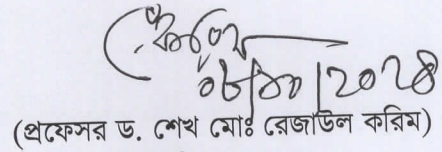 ০৮/১০/২০২৪
(প্রফেসর ড. শেখ মোঃ রেজাউল করিম)